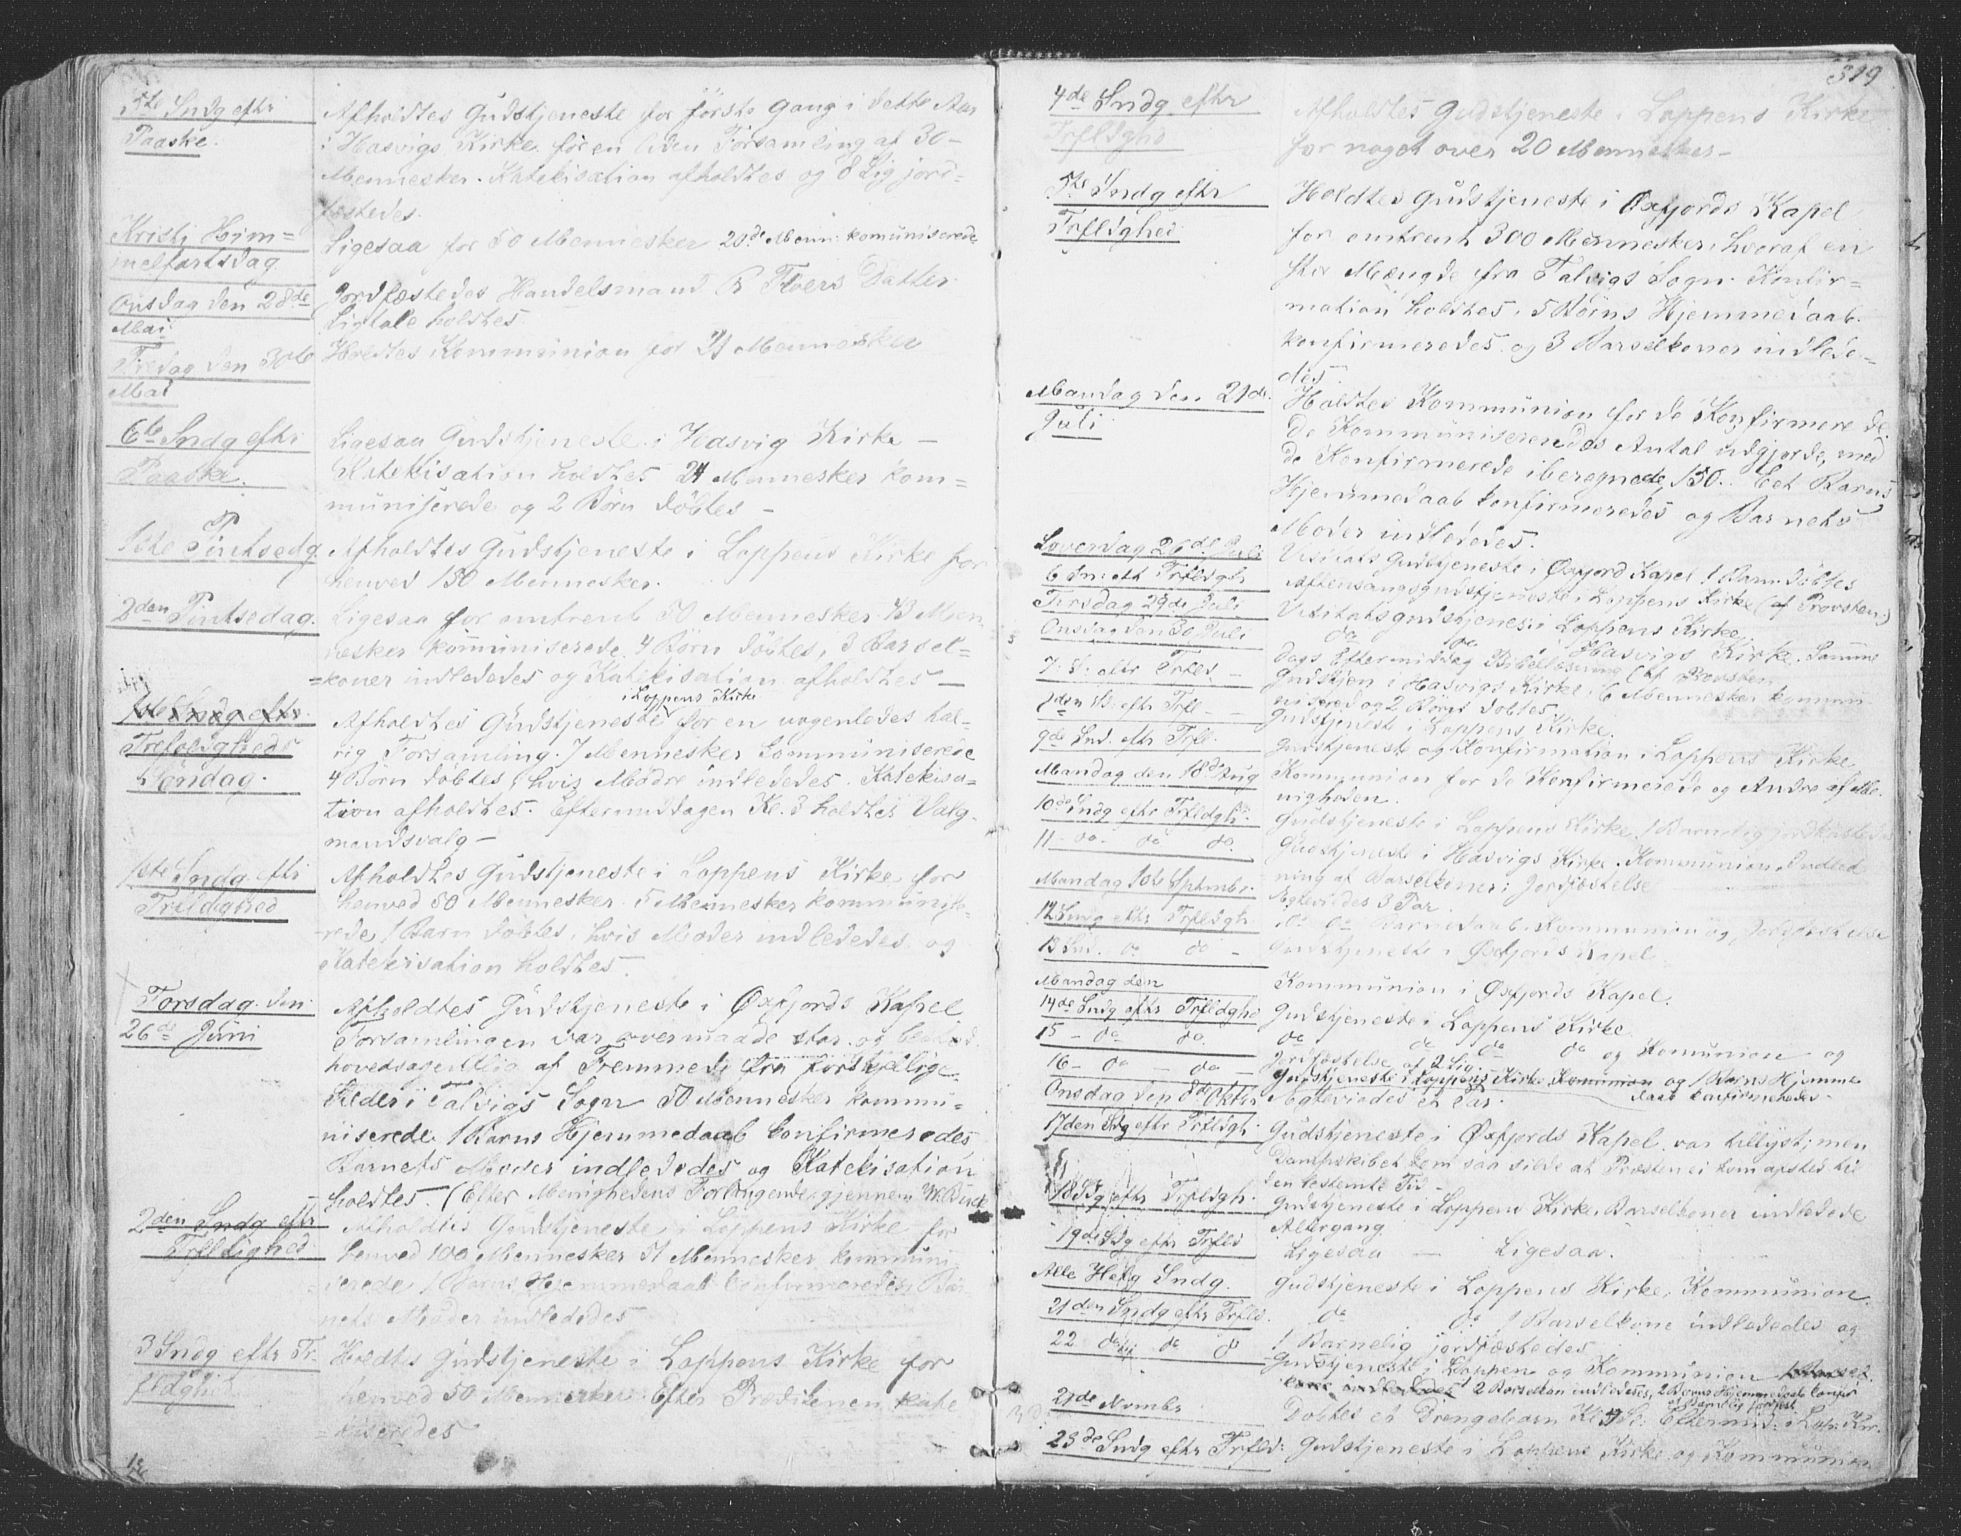 5te Sndg eftr
Paaske.
Afholdtes Gudstjeneste for første Gang i dette Aar
i Hasvigs Kirke for en liden Forsamling af 30
Mennesker. Katekisation afholdtes og 8 Lig jord=
fæstedes.
Kristi Him=
melfartsdag
Ligesaa for 50 Mennesker 20de Menn: komuniserede
Onsdag den 28de
Mai
Jordfæstedes Handelsmand Datter.
Ligtale holdtes.
Fredag den 30te
Mai
Holdtes Kommunion for Mennesker
6te Sndg eftr
Paaske.
Ligesaa Gudstjeneste i Hasvig Kirke —
Katekisation holdtes 21 Mennesker kom=
muniserede og 2 Børn døbtes —
1ste Pintsedg
Afholdtes Gudstjeneste i Loppens Kirke for
henved 150 Mennesker.
2den Pintsedag.
Ligesaa for omtrent 50 Mennesker. 13 Men
nesker kommuniserede. 4 Børn døbtes, 3 Barsel=
=koner indlededes og Katekisation afholdtes —
i Loppens Kirke
1ste Sndg eftr
Trefoldigheds
Søndag.
Afholdtes Gudstjeneste for en halv
Forsamling. 7 Mennesker kommuniserede
4 Børn døbtes hvis Mødre indlededes. Katekisa=
tion afholdtes. Eftermiddagen Kl. 3 holdtes Valg
mandsvalg —
1ste Sndg eftr
Trfldighed
Afholdtes Gudstjeneste i Loppens Kirke for
henved 50 Mennesker. 5 Mennesker kommunise=
rede, 1 Barn døbtes, hvis Moder indlededes og
Katekisation holdtes.
Torsdag den
26de Juni
Afholdtes Gudstjeneste i Øxfjords Kapel
Forsamlingen var overmaade stor og bestod
hovedsagentlig af Fremmede fra forskjellige
Steder i Talvigs Sogn 50 Mennesker kommu=
niserede. 1 Barns Hjemmedaab konfirmeredes
Barnets Moder indlededes og Katekisation
holdtes. (Efter Menighedens Forlangende gjennem
2den Sndg eftr
Trflighed
Afholdtes Gudstjeneste i Loppens Kirke for
henved 100 Mennesker 51 Mennesker kommuni
serede, 1 Barns Hjemmedaab konfirmeredes, Bar
nets Moder indlededes
3 Sndg eftr Tr
fldghed
Holdtes Gudstjeneste i Loppens Kirke for
henved 50 Mennesker. Efter Prædikenen kate
kiseredes
319
4de Sndg eftr
Trfldghd
Afholdtes Gudstjeneste i Loppens Kirke
for noget over 20 Mennesker —
5te Sndg eftr
Trfldghed
Holdtes Gudstjeneste i Øxfjords Kapel
for omtrent 300 Mennesker, hvoraf en
stor Mængde fra Talvigs Sogn. Konfir=
mation holdtes. 5 Børns Hjemmedaab
konfirmeredes og 3 Barselkoner indlede=
des.
Mandag den 21de
Juli
Holdtes Kommunion for de Konfirmerede.
De Kommuniserendes Antal udgjorde, med
de Konfirmerede iberegnede, 150. Eet Barns
Hjemmedaab konfirmeredes og Barnets
Moder indlededes.
Løverdag 26de Juli
Visitats Gudstjeneste i Øxfjord Kapel 1 Barn døbtes
6 Sn: eft Trfldgh
Aftensangsgudstjeneste i Loppens Kirke (af Provsten)
Tirsdag 29de Juli
Visitatsgudstjenes: i Loppens Kirke.
Onsdag den 30 Juli
do do Hasvigs Kirke. Samme
Dags Eftermiddag Bibellæsning (af Provsten
7: S: eftr Trfld. —
Gudstjen i Hasvigs Kirke. 6 Mennesker kommu
nisered og 2 Børns døbtes.
eftr Trfl — —
Gudstjeneste i Loppens Kirke.
9de Snd. eftr Trfl.
Gudstjeneste og Konfirmation i Loppens Kirke
Mandag den 18de Aug
Kommunion for de Konfirmerede og Andre af Me
nigheden.
10de Sndg eftr Trfldgh.
Gudstjeneste i Loppens Kirke, 1 Barnelig jordfæstedes
11 — do. do do.
Gudstjeneste i Hasvigs Kirke. Kommunion. Indled
ning af Barselkoner; Jordfæstelse
Mandag 1ste Sptmbr.
Ægtevides 3 Par.
12 Sndg eftr Trfldgh
do do Barnedaab. Kommunion og Jordfæstelse
13 Snd. do do —
Gudstjeneste i Øxfjords Kapel
Mandag den
Kommunion i Øxfjords Kapel.
14de Sndg eftr Trfldghd
Gudstjeneste i Loppens Kirke.
15 — do do.
do do do do og Komunion og
Jordfæstelse af 2 Lig.
16 — do — do —
Gudstjeneste i Loppens Kirke, Komunion og 1 Barns Hjemme
daab konfirmeredes —
Onsdag den 8de Oktbr
Ægteviedes et Par.
17den Sdg eftr Trfldgh.
Gudstjeneste i Øxfjords Kapel var tillyst; men
Dampskibet kom saa silde at Præsten ei kom afsted til
den bestemte Tid —
18 Sdg eftr Trfldgh.
Gudstjeneste i Loppens Kirke, Barselkoner indledede
Altergang
19de Sdg eftr Trfld
Ligesaa — Ligesaa.
Alle Helg Sndg.
Gudstjeneste i Loppens Kirke, Kommunion.
21den Sndg eftr Trfld.
do do 1 Barselkone indlededes og
1 Barnelig jordfæstedes
22 do do
Gudstjeneste i Loppen og Kommunion
2 Barselkon indlededes, 2 Børns Hjemmedaab konfir
21de Nvmbr
Døbtes et Drengebarn Kl Eftermid: i Lop: Kir.
23de Sndg eftr Trfld: Gudstjeneste i Loppens Kirke og Kommunion